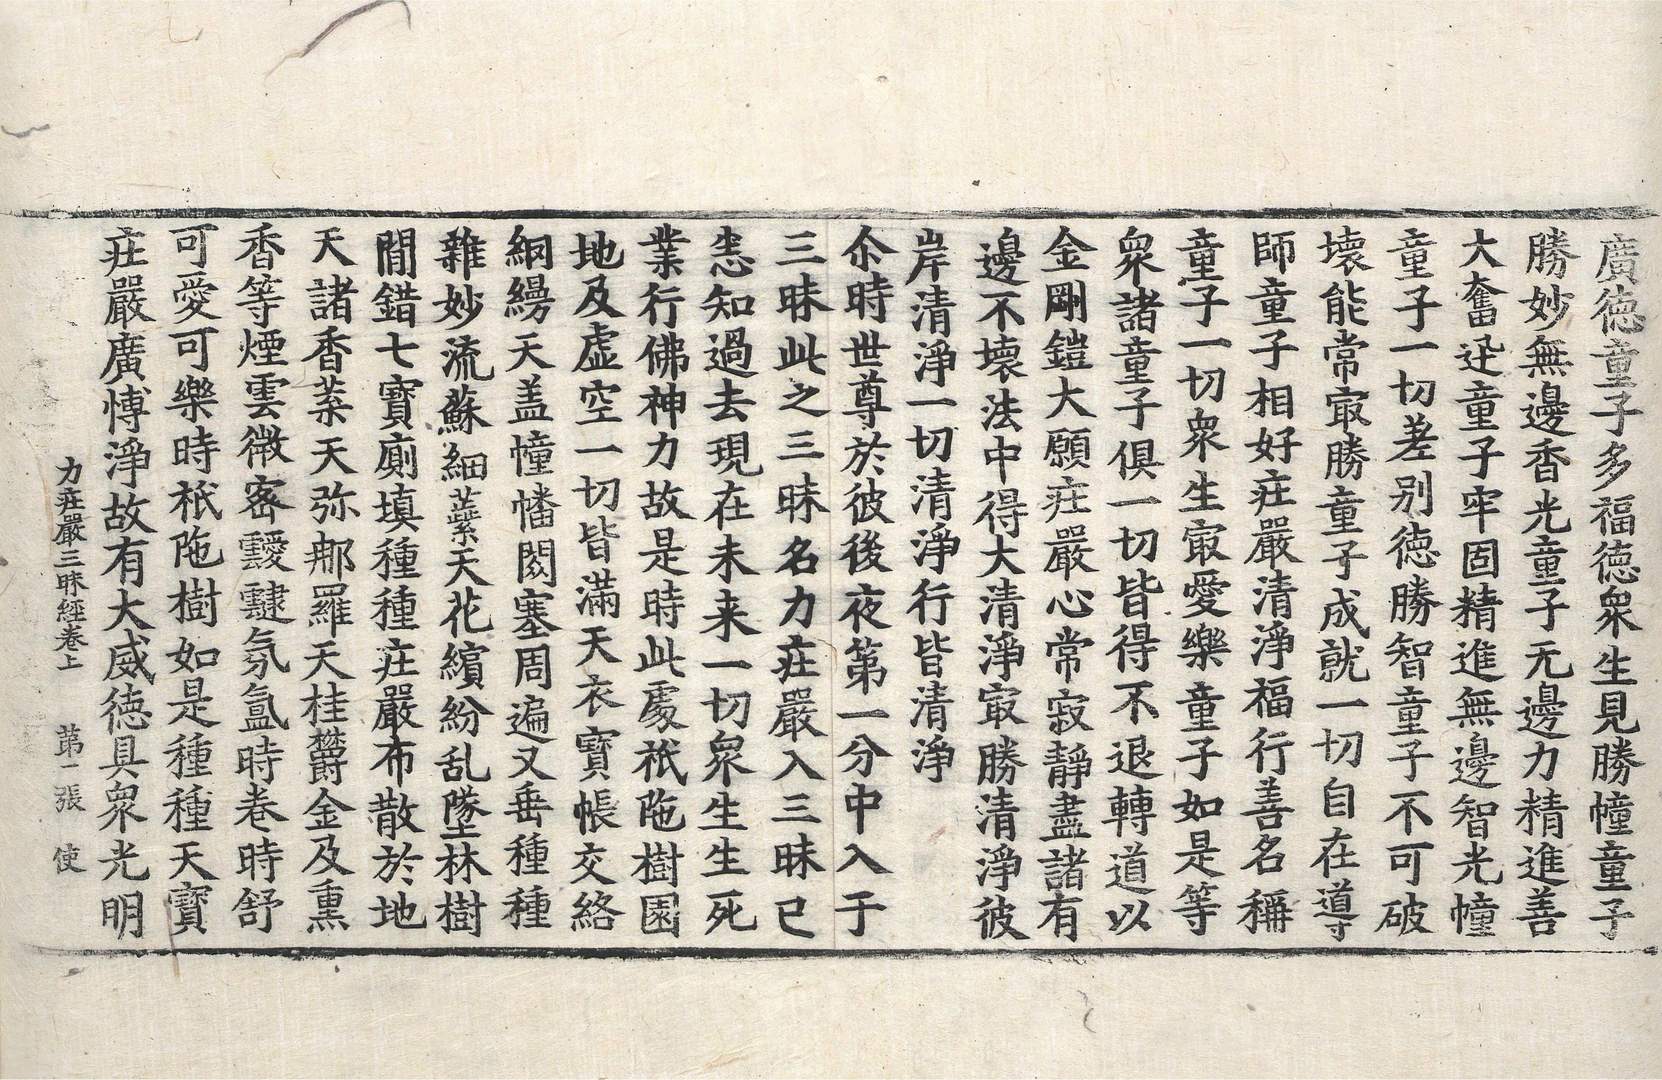 廣德童子多福德衆生見勝幢童子
勝妙無邊香光童子无邊力精進善
大奮迅童子牢固精進無邊智光幢
童子一切差别德勝智童子不可破
壞能常㝡勝童子成就一切自在導
師童子相好莊嚴清淨福行善名稱
童子一切衆生㝡愛樂童子如是等
衆諸童子俱一切皆得不退轉道以
金剛鎧大願莊嚴心常寂靜盡諸有
邊不壞法中得大清淨㝡勝清淨彼
岸清淨一切清淨行皆清淨
尒時世尊於彼後夜第一分中入于
三昧此之三昧名力莊嚴入三昧已
悉知過去現在未来一切衆生生死
業行佛神力故是時此處祇陁樹園
地及虛空一切皆滿天衣寶帳交絡
網縵天盖幢幡閎塞周遍又垂種種
雜妙流蘇細蘂天花繽紛乱墜林樹
間錯七寶廁填種種莊嚴布散於地
天諸香菜天弥那羅天桂欝金及熏
香等煙雲微密靉靆氛氳時卷時舒
可愛可樂時祇陁樹如是種種天寶
莊嚴廣博淨故有大威德具衆光明
力莊嚴三昧經卷上 第一張 使